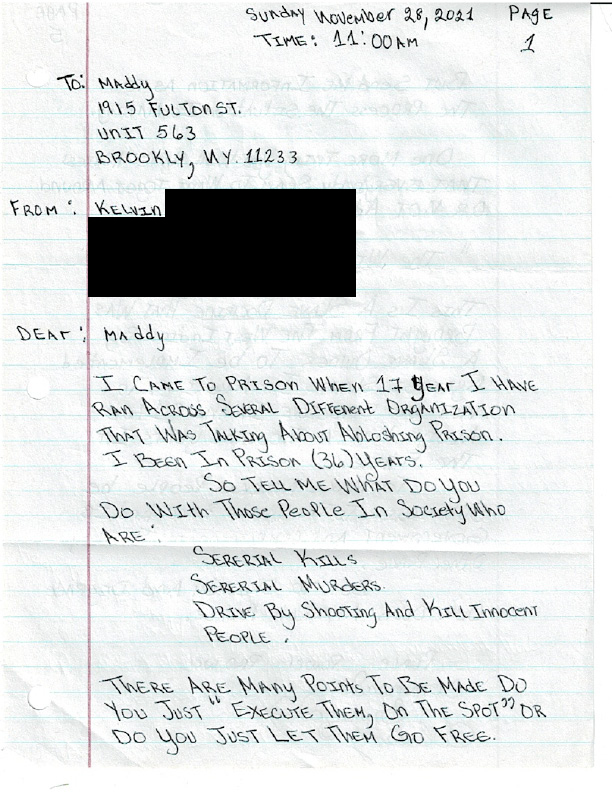 Sunday November 28, 2021 PAGE
TIME: 11:00AM 1
To: Maddy
1915 FULTON ST.
UNIT 563
BROOKLY, NY. 11233
FROM: KELVIN
DEAr: Maddy
I CAME TO PRISON WHEN 17 YEAr I HAVE
RAN ACROSS SEVERAL DIFFERENT ORGANIZATION
THAT WAS TALKING ABOUT AbLOSHING PRISON.
I BEEN IN PRISON (36) YEARS.
SO TELL ME WHAT DO YOU
DO WITH THOSE PEOPLE IN SOCIETY WHO
ARE:
SERERIAL KILLS
SERERIAL MURDERS.
DRIVE BY SHOOTING AND KILL INNOCENT
PEOPLE.
THERE ARE MANY POINTS TO BE MADE DO
YOU JUST "EXECUTE THEM, ON THE SPOT" OR
DO YOU JUST LET THEM GO FREE.